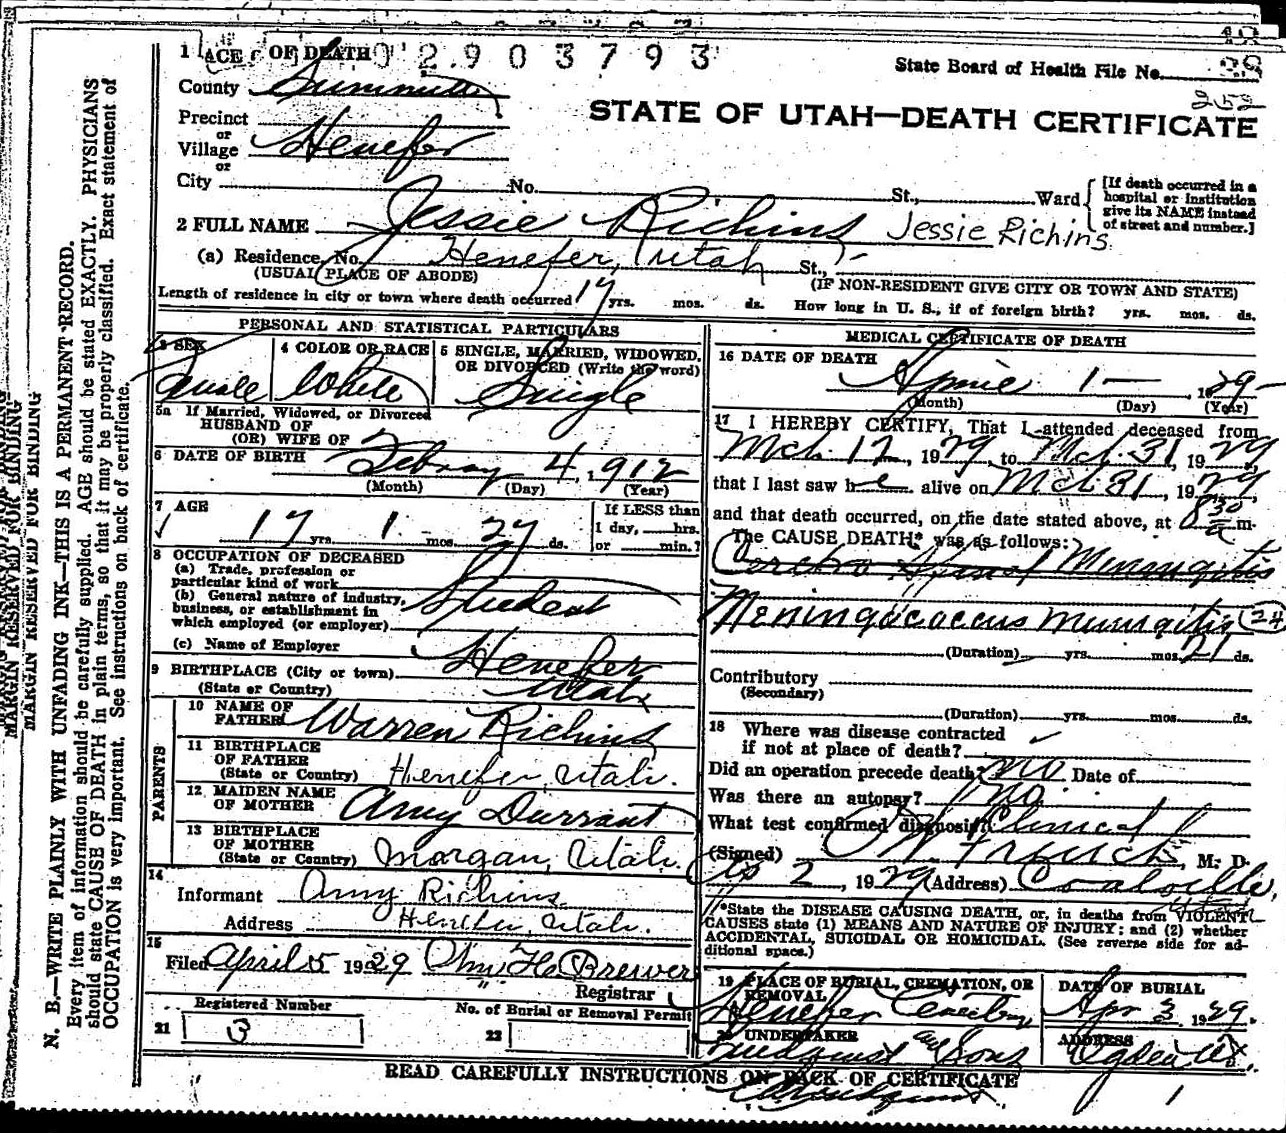 1 PLACE OF DEATH 02903793
State Board of Health File No. 38
252
County Summit
STATE OF UTAH—DEATH CERTIFICATE
Precinct
or
Village Henefer
or
City No. St., Ward
[If death occurred in a hospital or institution give its NAME instead of street and number.]
2 FULL NAME Jessie Richins Jessie Richins
(a) Residence, No. Henefer, Utah St.,
(USUAL PLACE OF ABODE) (IF NON-RESIDENT GIVE CITY OR TOWN AND STATE)
Length of residence in city or town where death occurred 17 yrs. mos. ds. How long in U. S., if of foreign birth? yrs. mos. ds.
PERSONAL AND STATISTICAL PARTICULARS
3 SEX 4 COLOR OR RACE 5 SINGLE, MARRIED, WIDOWED, OR DIVORCED (Write the word)
Female White Single
5a If Married, Widowed, or Divorced
HUSBAND OF
(OR) WIFE OF
6 DATE OF BIRTH 4, 1912
(Month) (Day) (Year)
7 AGE
17 yrs. 1 mos. 27 ds.
If LESS than 1 day, hrs. or min.?
8 OCCUPATION OF DECEASED
(a) Trade, profession or particular kind of work Student
(b) General nature of industry, business, or establishment in which employed (or employer)
(c) Name of Employer
9 BIRTHPLACE (City or town) Henefer
(State or Country) Utah
PARENTS
10 NAME OF FATHER Warren Richins
11 BIRTHPLACE OF FATHER (State or Country) Henefer, Utah.
12 MAIDEN NAME OF MOTHER Amy Durrant
13 BIRTHPLACE OF MOTHER (State or Country) Morgan, Utah.
14
Informant Amy Richins
Address Henefer, Utah.
15
Filed April 5 1929 Brewer
Registrar
Registered Number No. of Burial or Removal Permit
21 3 22
MEDICAL CERTIFICATE OF DEATH
16 DATE OF DEATH
April 1— , 1929—
(Month) (Day) (Year)
17 I HEREBY CERTIFY, That I attended deceased from
Mch. 12, 1929, to Mch. 31, 1929,
that I last saw h alive on Mch 31, 1929
and that death occurred, on the date stated above, at 8 30 a m.
The CAUSE DEATH* was as follows:
Cerebro Spinal Meningitis
Meningococcus Meningitis 24
(Duration) yrs. mos. 21 ds.
Contributory
(Secondary)
(Duration) yrs. mos. ds.
18 Where was disease contracted
if not at place of death?
Did an operation precede death? No Date of
Was there an autopsy? No
What test confirmed diagnosis? Clinical
(Signed) M. D.
2, 1929 (Address) Coalville, Utah
*State the DISEASE CAUSING DEATH, or, in deaths from VIOLENT
CAUSES state (1) MEANS AND NATURE OF INJURY; and (2) whether
ACCIDENTAL, SUICIDAL OR HOMICIDAL. (See reverse side for ad-
ditional space.)
19 PLACE OF BURIAL, CREMATION, OR REMOVAL DATE OF BURIAL
Henefer Apr 3 1929.
20 UNDERTAKER ADDRESS
Sons Ogden Ut.
READ CAREFULLY INSTRUCTIONS ON BACK OF CERTIFICATE
1
MARGIN RESERVED FOR BINDING
N. B.—WRITE PLAINLY WITH UNFADING INK—THIS IS A PERMANENT RECORD.
Every item of information should be carefully supplied. AGE should be stated EXACTLY. PHYSICIANS
should state CAUSE OF DEATH in plain terms, so that it may be properly classified. Exact statement of
OCCUPATION is very important. See instructions on back of certificate.